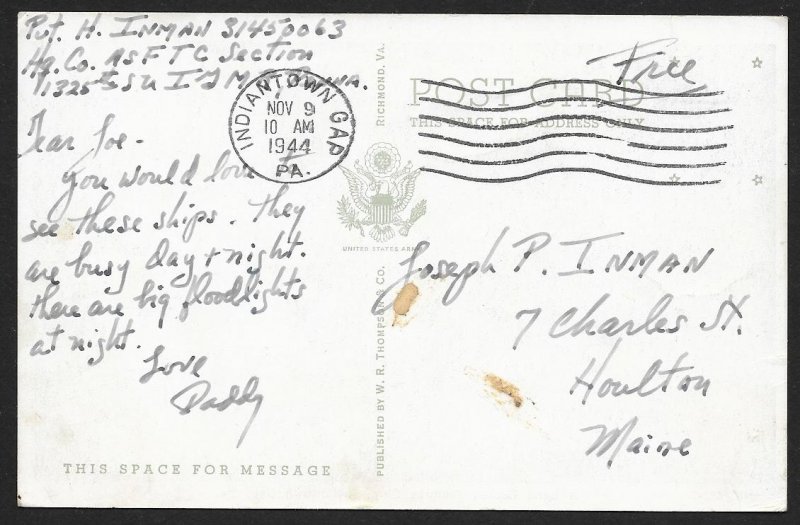 Pvt. H. INMAN 31450063
Hq. Co. ASFTC Section
1325th SU I J M R, Penna.
Dear Joe-
You would love to
see these ships. They
are busy day + night.
there are big floodlights
at night.
Love
Daddy
THIS SPACE FOR MESSAGE
INDIANTOWN GAP
NOV 9
10 AM
1944
PA.
PUBLISHED BY W. R. THOMPSON & CO. RICHMOND, VA.
UNITED STATES ARMY
Free
POST CARD
THIS SPACE FOR ADDRESS ONLY
Joseph P. INMAN
7 Charles St.
Houlton
Maine